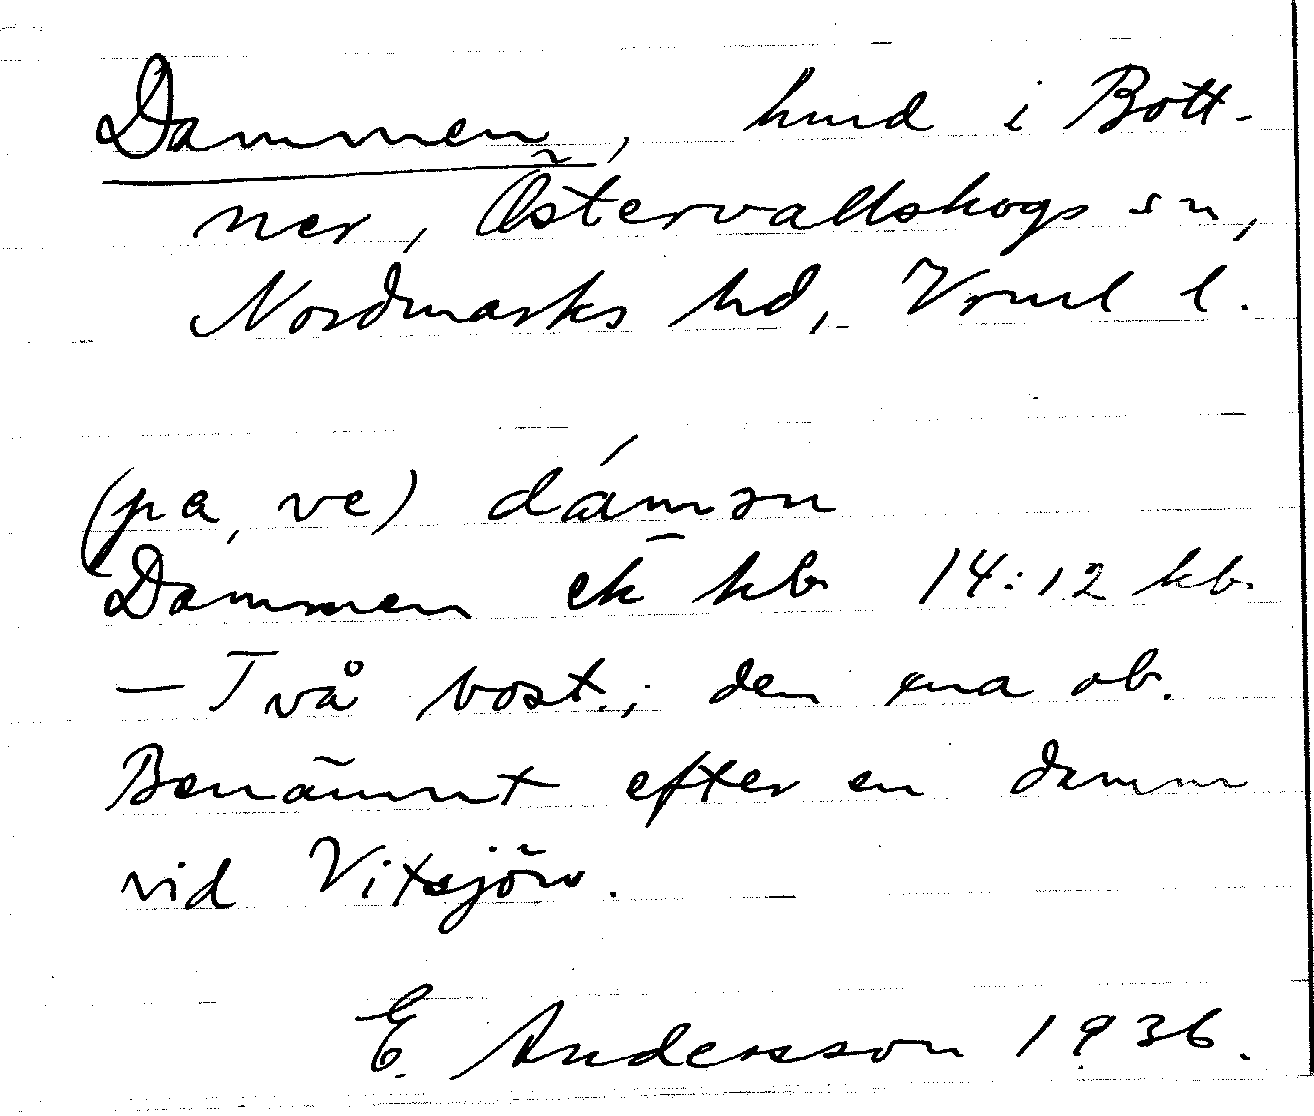 Dammen, hmd i Bott-
ner, Östervallskogs sn,
Nordmarks hd, Vrml l.
(pa, ve) dámən
Dammen ek hb 14:12 kb.
— Två bost.; den ena ob.
Benämnt efter en damm
vid Vitsjön.
E. Andersson 1936.